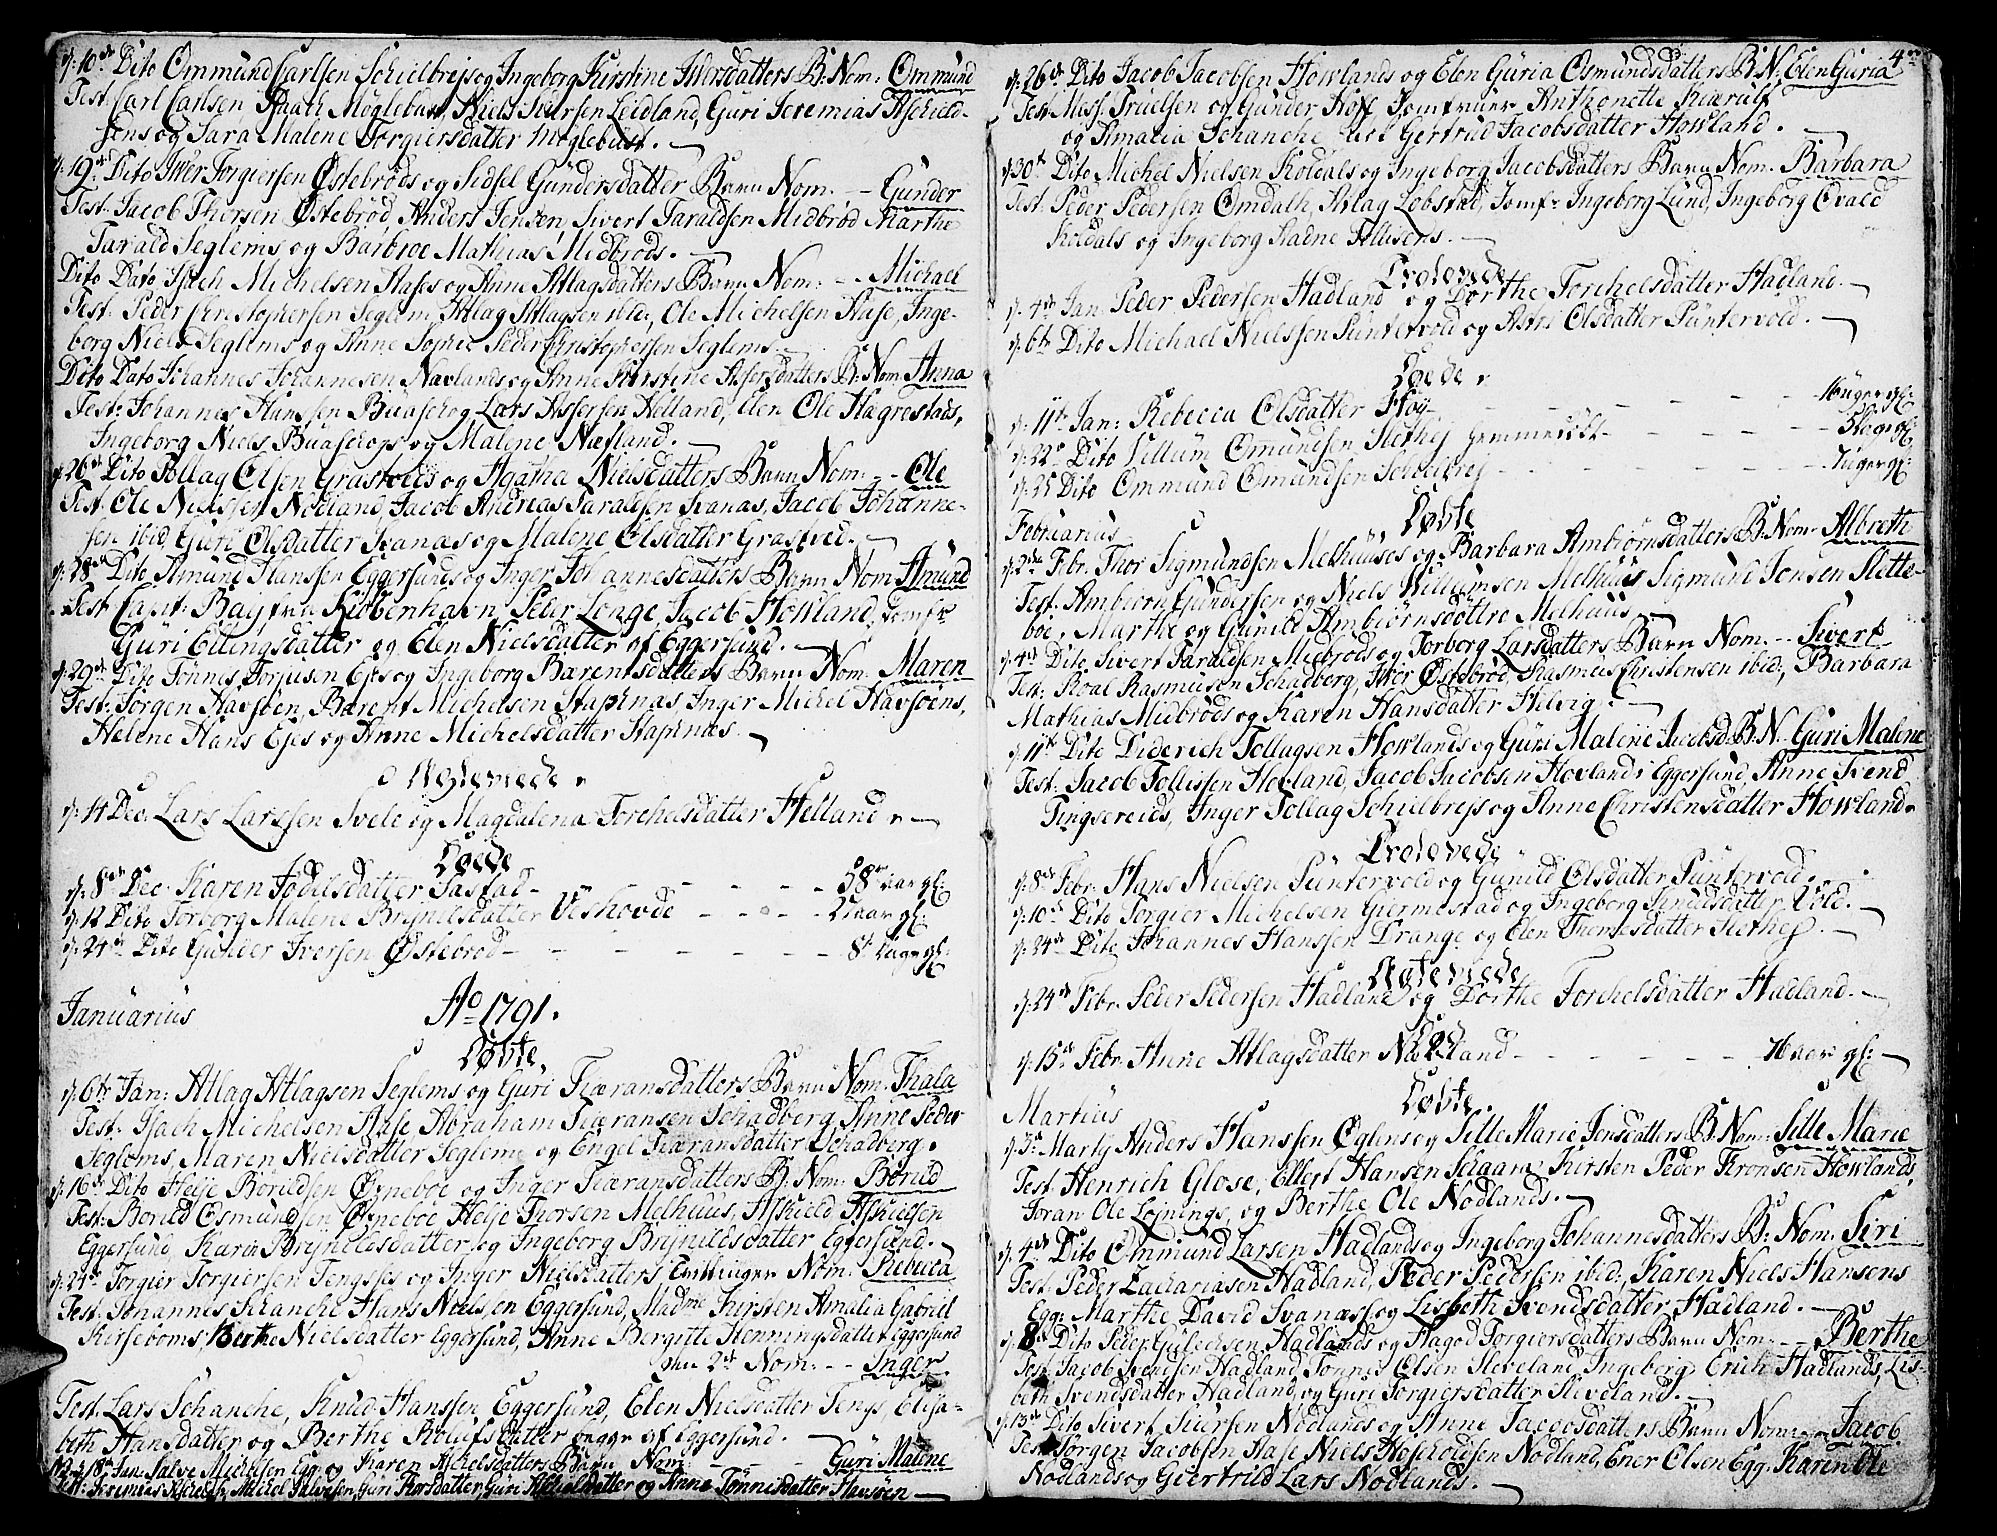 d: 10de Dito Ommund Carlsen Schielbrejs og Ingeborg Kirstine Iwersdatters B: Nom: Ommund
Test: Carl Carlsen, Møglebust, Niels Iversen Leidland, Guri Jeremias Aschield-
sens og Sara Malene Torgiersdatter Møglebust.
d: 19de Dito Iwer Torgiersen Østebrøds og Sidsel Gundersdatter Barn Nom: -- Gunder
Test: Jacob Thorsen Østebrød, Anders Jensen, Sivert Taraldsen Midbrød Marthe
Tarald Seglems og Barbroe Mathias Midbrøds.
Dito Dato Isach Michelsen Aases og Anne Atlagsdatters Barn Nom: -- Michael
Test: Peder Christophersen Seglem, Atlag Atlagsen ibid:, Ole Michelsen Aase, Inge-
borg Niels Seglems og Anne Sophie Peder Christophersen Seglems.
Dito Dato Johannes Johannesen Navlands og Anne Kirstine Assersdatters B: Nom: Anna
Test: Johannes Hanssen Buasch og Lars Assersen Helland, Elen Ole Hægrestads,
Ingeborg Niels Buaschogs og Malene Nætland.
d: 26de Dito Tollag Olsen Grastveds og Agatha Nielsdatters Barn Nom: -- Ole
Test: Ole Nielssen Nodland, Jacob Andreas Taraldsen Svanas, Jacob Johanne-
sen ibid, Guri Olsdatter Svanas og Malene Olsdatter Grastved.
d: 28de Dito Amund Hanssen Eggersunds og Inger Johannesdatters Barn Nom Amund
Test: Capit: Baij fra Kiøbenhavn, Peder Longe, Jacob Howland, Jomfr
Guri Ellingsdatter og Elen Nielsdatter af Eggersund.
d: 29de Dito Tønnes Torjusen Ejes og Ingeborg Bærentsdatters Barn Nom: Maren
Test: Jørgen Havsøen, Bærent Michelsen Stapnæs, Inger Michel Havsøens,
Helene Hans Ejes og Anne Michelsdatter Stapnæs.
Ægteviede
d: 14 Dec. Lars Larssen Svele og Magdalena Torchelsdatter Helland
Døede
d: 8de Dec. Karen Jodelsdatter Jastad - - - - - 58 aar gl:
d: 12 Dito Torborg Malene Brynelsdatter Veshovde - - - - 2 aar gl:
d: 24de Dito Gunder Iversen Østebrød - - - - - - 8t Dage gl:
Januarius Ao 1791.
Døbte
d: 6te Jan: Atlag Atlagsen Seglems og Guri Fiæransdatters Barn Nom: Thala
Test: Isach Michelsen Aase Abraham Fiæransen Schadberg, Anne Peder
Seglems, Maren Nielsdatter Seglem og Engel Fiæransdatter Schadberg.
d: 16de Dito Helje Borildsen Ørneboe og Inger Fiæransdatters B: Nom: Borild
Test: Borild Osmundsen Ørneboe Helje Thorsen Melhuus, Askield Askieldsen
Eggersund, Karen Brynildsdatter og Ingeborg Brynildsdatter Eggersund.
d: 24de Torgier Torgiersen Tengsses og Inger Nielsdatters, Tvillinger Nom: Rebecca
Test: Johannes Schanche Hans Nielssen Eggersund, Madme Kirsten Amalia Gabriel
Kirseboms, Berthe Nielsdatter Eggersund, Anne Bergitte Henningsdatter Eggersund
den 2de Nom: -- Inger
Test: Lars Schanche, Knud Hanssen Eggersund, Elen Nielsdatter Tengs, Elisa-
beth Hansdatter og Berthe Roulfsdatter begge af Eggersund.
d: 18de Jan: Salve Michelsen Egg: og Karen Askelsdatters Barn Nom: Guri Malene
Test: Jeremias Aschield, Michel Salvesen, Guri Thorsdatter, Guri Aschieldsdatter og Anne Tønnisdatter Havsøen
4
d: 26de Dito Jacob Jacobsen Howlands og Elen Guria Osmundsdatters B: N: Elen Guria
Test: Mess: Truelsen og Gunder Hoff, Jomfruer Anthonette Kierulf
og Amalia Schanche, Gertrud Jacobsdatter Howland.
d: 30te Dito Michel Nielsen Koldals og Ingeborg Jacobsdatters Barn Nom. Barbara
Test: Peder Pedersen Omdalh, Aslag Lobstad, Jomfr Ingeborg Lund, Ingeborg Evald
Koldals og Ingeborg Tollisens.
Trolovede
d: 4de Jan: Peder Pedersen Hadland og Dorthe Torchelsdatter Hadland.
d: 6te Dito Michael Nielssen Puntervold og Astri Olsdatter Puntervold.
Døede
d: 11te Jan: Rebecca Olsdatter Høy - - - - - 16 uger gl:
d: 22de Dito Villum Omundsen Slethej hjemmedøbt - - - - 5 Dage gl:
d: 25 Dito Ommund Omundsen Schielbrej - - - - - 7 uger gl:
Februarius Døbte
d: 2den Febr. Thor Sigmundsen Melhuuses og Barbara Ambiørnsdatters B: Nom: Albreth
Test: Ambiørn Gundersen og Niels Willumsen Melhuus Sigmund Jonsen Slette-
boe, Marthe og Gunild Ambiørnsdøttre Melhuus.
d: 4de Dito Sivert Taraldsen Midbrøds og Torborg Larsdatters Barn Nom: -- Sivert
Test: Roal Rasmusen Schadberg, Iver Østebrød, Rasmus Christensen ibid:, Barbara
Mathias Midbrøds og Karen Hansdatter Helvig.
d: 11te Dito Diderich Tollagsen Howlands og Guri Malene Jacobsd: B: N: Guri Malene
Test: Jacob Tollissen Hovland, Jacob Jacobsen Hovland i Eggersund, Anne Svend
Tingsereids, Inger Tollag Schielbrejs og Anne Christensdatter Howland.
Trolovede
d: 8de Febr. Hans Nielsen Puntervold og Gunild Olsdatter Puntervold.
d: 10de Dito Torgier Michelsen Giermestad og Ingeborg Knudsdatter Vold.
d: 24de Dito Johannes Hanssen Drange og Elen Thomesdatter Slethej.
Ægteviede
d: 24de Febr. Peder Pedersen Hadland og Dorthe Torchelsdatter Hadland.
Død
d: 15de Febr. Anne Atlagsdatter Nætland - - - - - 76 aar gl:
Martius Døbte.
d: 3de Marty Anders Hanssen Oglens og Sille Marie Jensdatters B: Nom: Sille Marie
Test: Henrich Glose, Ellert Hansen Seiaam, Kirsten Peder Thronsen Howlands,
Joran Ole Lojnings, og Berthe Ole Nodlands.
d: 4de Dito Ommund Larsen Hadlands og Ingeborg Johannesdatters B: Nom: Siri
Test: Peder Zachariasen Hadland, Peder Pedersen ibid:, Karen Niels Hansens
Egg: Marthe David Svanæs og Lisbeth Svendsdatter Hadland.
d: 8de Dito Peder Gulichsen Hadlands og Aagod Torgiersdatters Barn Nom: -- Berthe
Test: Jacob Svendsen Hadland, Tønnes Olsen Sleveland, Ingeborg Erich Hadlands, Lis-
beth Svendsdatter Hadland, og Guri Torgiersdatter Sleveland.
d: 13de Dito Sivert Siversen Nodlands og Anne Jacobsdatters Barn Nom: -- Jacob
Test: Jørgen Jacobsen Aase, Niels Aschieldsen Nodland, Ener Olsen Egg: Karen Ole
Nodlands og Giertrud Lars Nodlands.